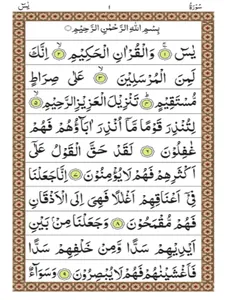 سُورَةُ ١ يٰسٓ
بِسْمِ اللهِ الرَّحْمٰنِ الرَّحِيْمِ
يٰسٓ ۝١ وَالْقُرْاٰنِ الْحَكِيْمِ ۝٢ اِنَّكَ
لَمِنَ الْمُرْسَلِيْنَ ۝٣ عَلٰى صِرَاطٍ
مُّسْتَقِيْمٍ ۝٤ تَنْزِيْلَ الْعَزِيْزِ الرَّحِيْمِ ۝٥
لِتُنْذِرَ قَوْمًا مَّآ اُنْذِرَ اٰبَآؤُهُمْ فَهُمْ
غٰفِلُوْنَ ۝٦ لَقَدْ حَقَّ الْقَوْلُ عَلٰٓى
اَكْثَرِهِمْ فَهُمْ لَا يُؤْمِنُوْنَ ۝٧ اِنَّا جَعَلْنَا
فِيْٓ اَعْنَاقِهِمْ اَغْلٰلًا فَهِيَ اِلَى الْاَذْقَانِ
فَهُمْ مُّقْمَحُوْنَ ۝٨ وَجَعَلْنَا مِنْۢ بَيْنِ
اَيْدِيْهِمْ سَدًّا وَّمِنْ خَلْفِهِمْ سَدًّا
فَاَغْشَيْنٰهُمْ فَهُمْ لَا يُبْصِرُوْنَ ۝٩ وَسَوَآءٌ